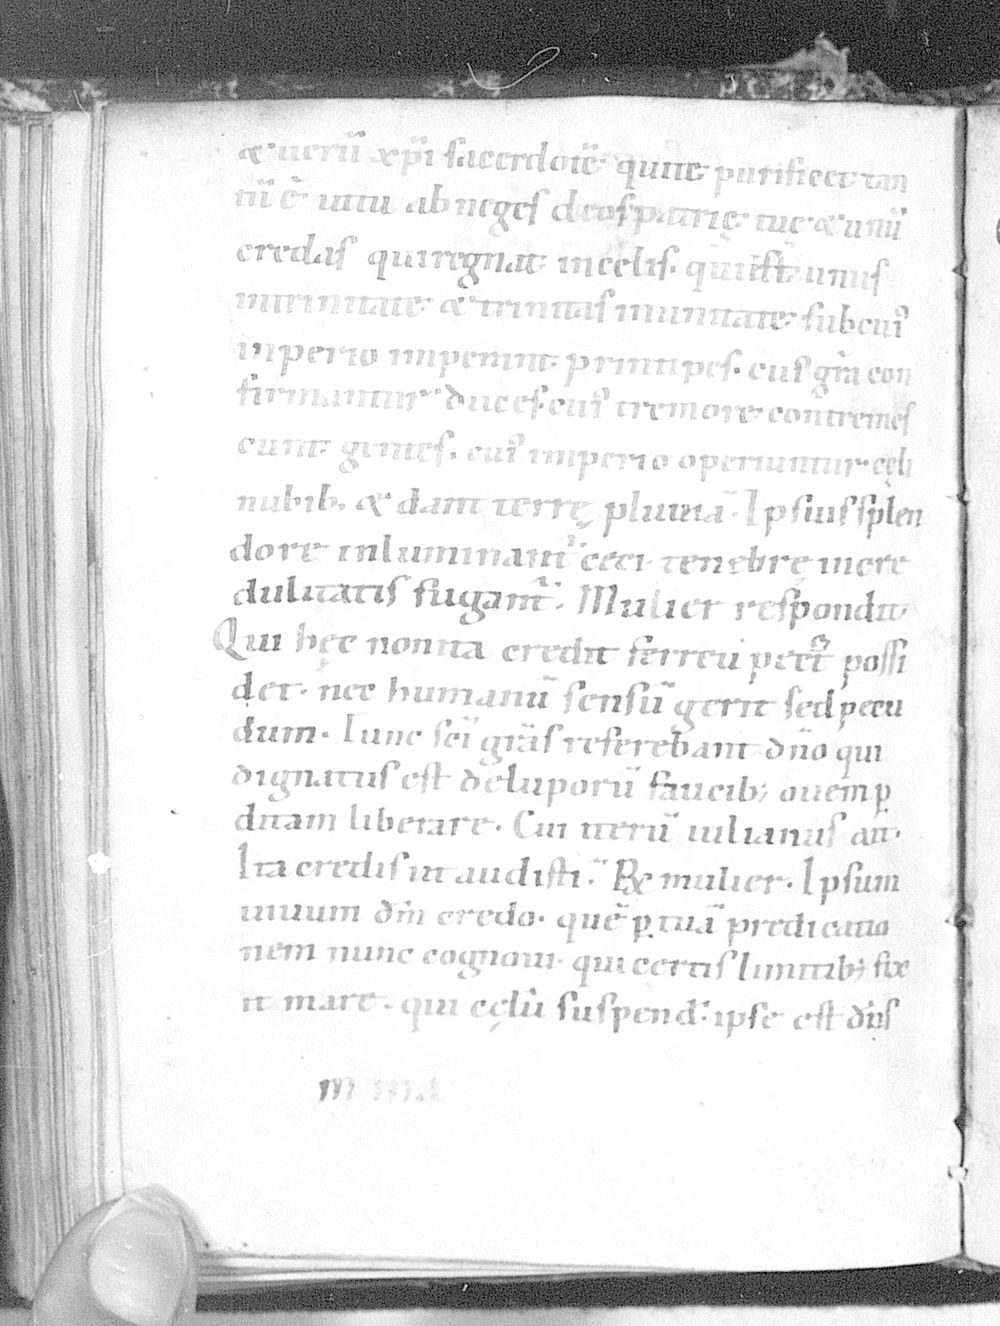 & uerū xp̄i sacerdotē qui te purificet tan
tū ē uitu abneges deos patrię tuę & unū
credas qui regnat in celis. qui ē unus
in trinitate & trinitas in unitate sub cui᾽
inperio imperant principes. cui᾽ gr̄a con
firmantur duces. cui᾽ tremore contremes
cunt gentes. cui᾽ imperio operiuntur cęli
nubib. & dant terrę pluuiā. Ipsius splen
dore inluminant᾽ ceci. tenebrę incre
dulitatis fugant᾽. Mulier respondit.
Qui hęc non ita credit ferreū pect᾽ possi
det. nec humanū sensū gerit sed pecu
dum. Tunc sc̄i gr̄as referebant dn̄o qui
dignatus est de luporū faucib; ouem ꝑ
ditam liberare. Cui iterū iulianus ait.
Ita credis ut audisti. R̄ mulier. Ipsum
uiuum dm̄ credo. quē ꝑ tuā predicatio
nem nunc cognoui. qui certis limitib; fix
it mare. qui cęlū suspend᾽. ipse est dn̄s